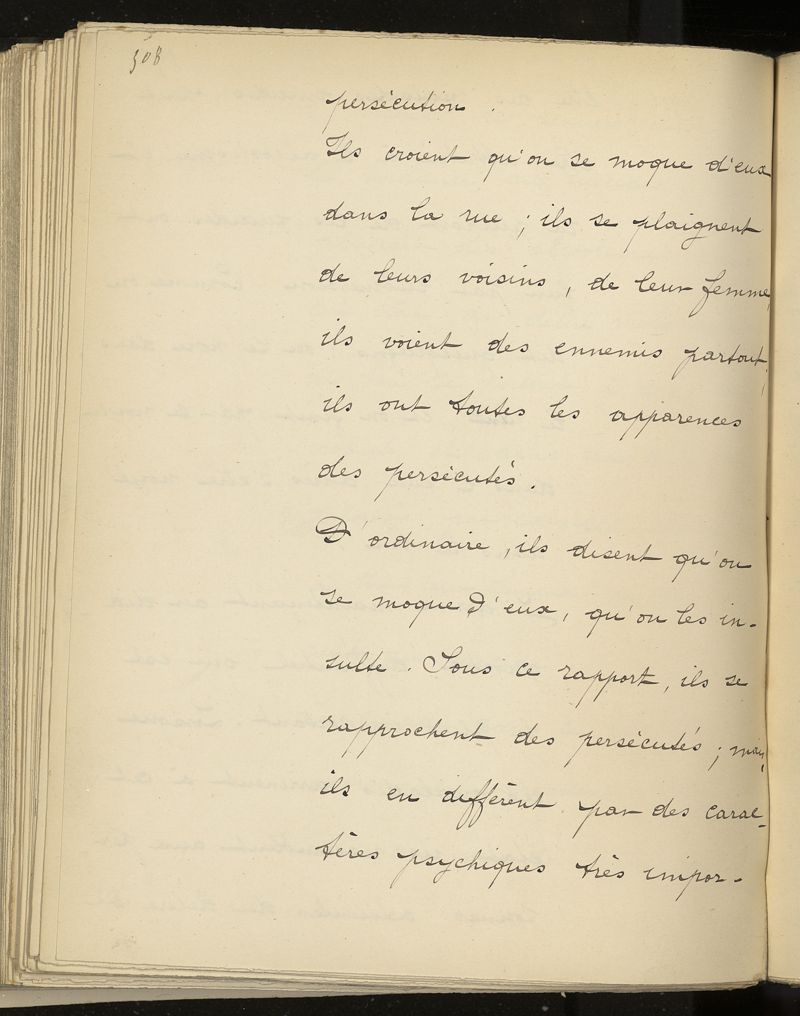 308
persécution.
Ils croient qu'on se moque d'eux
dans la rue ; ils se plaignent
de leurs voisins, de leur femme,
ils voient des ennemis partout,
ils ont toutes les apparences
des persécutés.
D'ordinaire, ils disent qu'on
se moque d'eux, qu'on les in-
sulte. Sous ce rapport, ils se
rapprochent des persécutés ; mais
ils en diffèrent par des carac-
tères psychiques très impor-